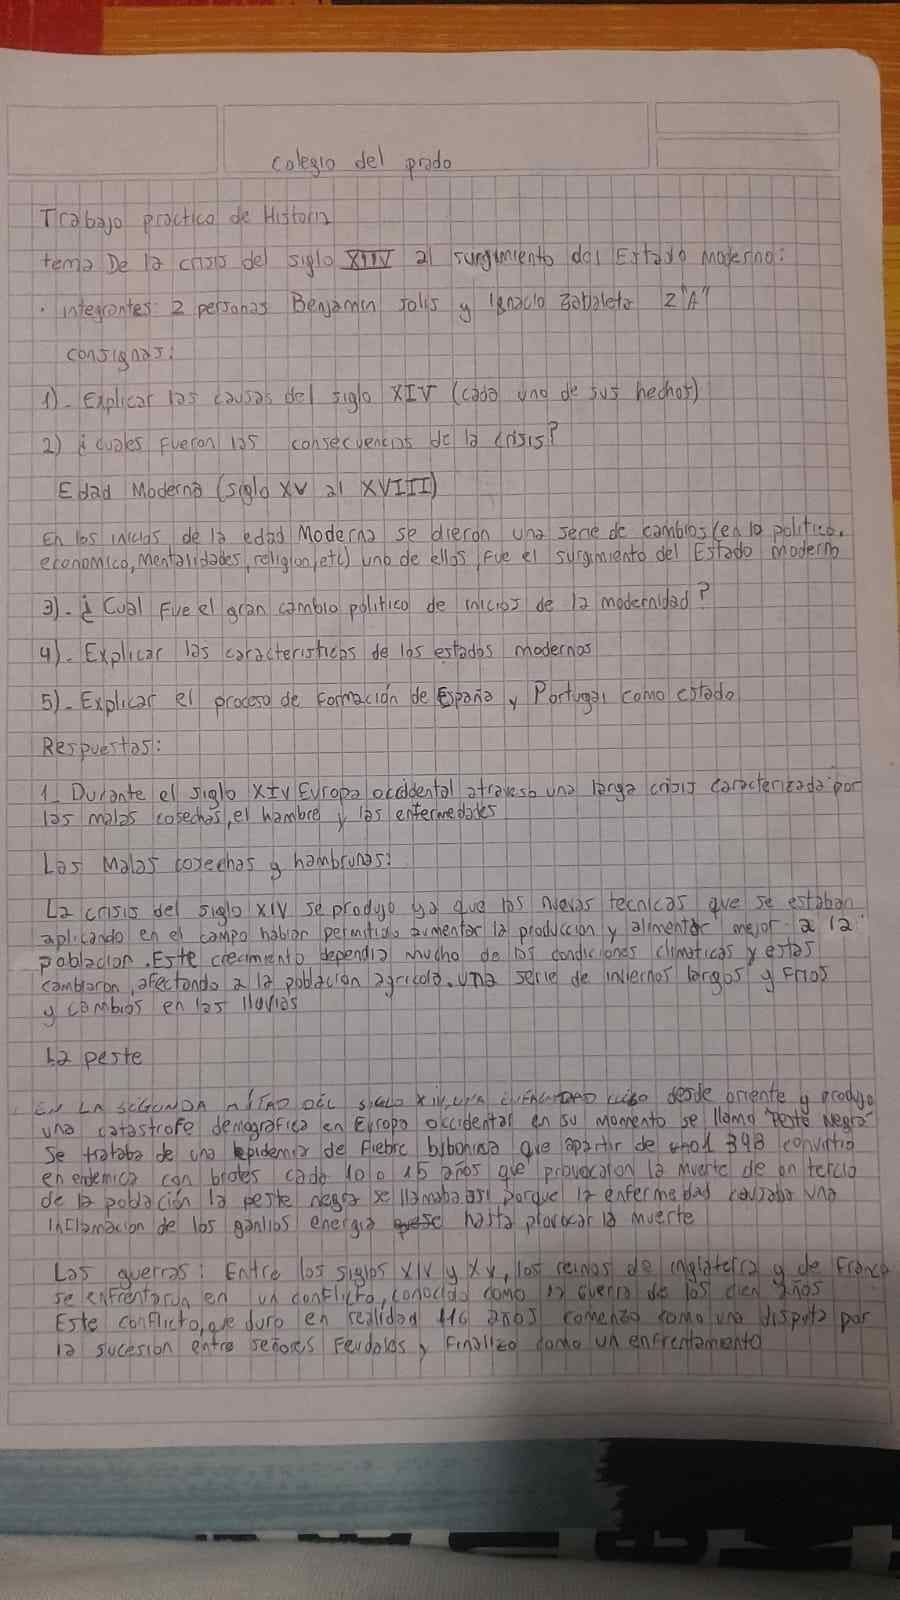 colegio del prado
Trabajo practico de Historia
tema De la crisis del siglo XIIV al surgimiento del Estado moderno:
· integrantes: 2 personas Benjamin Solis y Ignacio Zabaleta 2"A"
consignas:
1)- Explicar las causas del siglo XIV (cada uno de sus hechos)
2) ¿cuales Fueron las consecuencias de la crisis?
Edad Moderna (siglo XV al XVIII)
En los inicios de la edad Moderna se dieron una serie de cambios (en la politica,
economico, mentalidades, religion, etc) uno de ellos, fue el surgimiento del Estado moderno
3)- ¿Cual Fue el gran cambio politico de inicios de la modernidad?
4)- Explicar las caracteristicas de los estados modernos
5)- Explicar el proceso de Formación de España y Portugal como estado
Respuestas:
1_ Durante el siglo XIV Europa occidental atraveso una larga crisis caracterizada por
las malas cosechas, el hambre y las enfermedades
Las Malas cosechas y hambrunas:
La crisis del siglo XIV se produjo ya que las nuevas tecnicas que se estaban
aplicando en el campo habian permitido aumentar la produccion y alimentar mejor a la
poblacion. Este crecimiento dependia mucho de las condiciones climaticas y estas
cambiaron, afectando a la población agricola. una serie de inviernos largos y Frios
y cambios en las lluvias
La peste
EN LA SEGUNDA MITAD DEL SIGLO XIV, UNA ENFERMEDAD llego desde oriente y produjo
una catastrofe demografica en Europa occidental en su momento se llamo "Peste Negra"
Se trataba de una epidemia de Fiebre bubonica que apartir de 1348 convirtio
en endemica con brotes cada 10 o 15 años que provocaron la muerte de un tercio
de la población la peste negra se llamaba asi porque la enfermedad causaba una
inflamacion de los ganlios energia hasta provocar la muerte
Las guerras: Entre los siglos XIV y XV, los reinos de inglaterra y de Francia
se enfrentaron en un conflicto, conocido como la guerra de los cien años
Este conflicto, que duro en realidad 116 años comenzo como una disputa por
la sucesion entre señores Feudales y Finalizo como un enfrentamiento